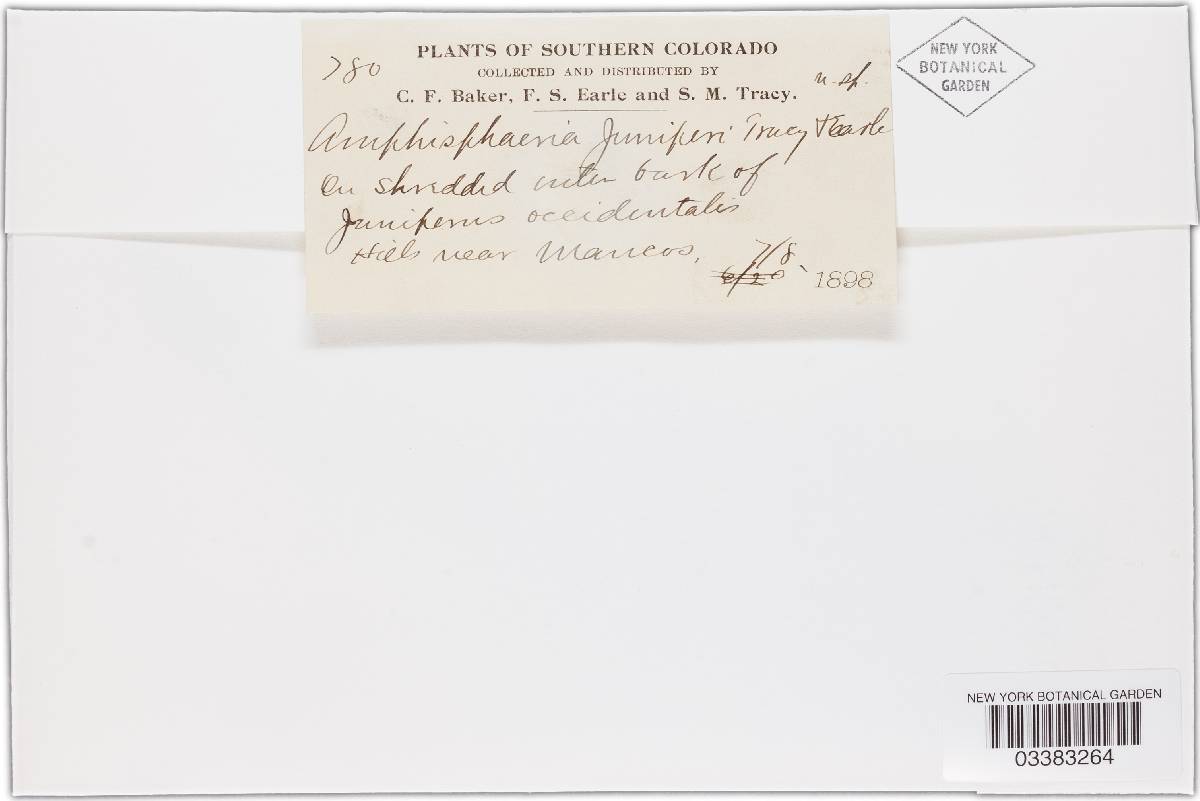 PLANTS OF SOUTHERN COLORADO
780
COLLECTED AND DISTRIBUTED BY
C. F. Baker, F. S. Earle and S. M. Tracy.
n. sp.
Amphisphaeria Juniperi Tracy & Earle
On shredded outer bark of
Juniperus occidentalis
Hills near Mancos,
7/8
6/20
1898
NEW YORK
BOTANICAL
GARDEN
NEW YORK BOTANICAL GARDEN
03383264